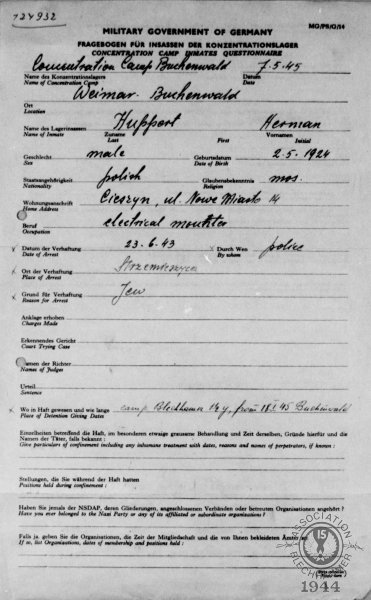 124932
MG/PS/G/14
MILITARY GOVERNMENT OF GERMANY
FRAGEBOGEN FÜR INSASSEN DER KONZENTRATIONSLAGER
CONCENTRATION CAMP INMATES QUESTIONNAIRE
Concentration Camp Buchenwald 7.5.45
Name des Konzentrationslagers Datum
Name of Concentration Camp Date
Weimar Buchenwald
Ort
Location
Huppert Herman
Name des Lagerinsassen Zuname Vornamen
Name of Inmate Last First Initial
male 2.5.1924
Geschlecht Geburtsdatum
Sex Date of Birth
polish mos.
Staatsangehörigkeit Glaubensbekenntnis
Nationality Religion
Cieszyn, ul. Nowe Miasto 14
Wohnungsanschrift
Home Address
electrical
Beruf
Occupation
23.6.43 police
x Datum der Verhaftung Durch Wen
Date of Arrest By whom
Strzemieszyce
x Ort der Verhaftung
Place of Arrest
Jew
x Grund für Verhaftung
Reason for Arrest
Anklage erhoben
Charges Made
Erkennendes Gericht
Court Trying Case
Namen der Richter
Names of Judges
Urteil
Sentence
camp Blechhamer 1½ y, from 18.I.45 Buchenwald
x Wo in Haft gewesen und wie lange
Place of Detention Giving Dates
Einzelheiten betreffend die Haft, im besonderen etwaige grausame Behandlung und Zeit derselben, Gründe hierfür und die
Namen der Täter, falls bekannt:
Give particulars of confinement including any inhumane treatment with dates, reasons and names of perpetrators, if known:
Stellungen, die Sie während der Haft hatten
Positions held during confinement:
Haben Sie jemals der NSDAP, deren Gliederungen, angeschlossenen Verbänden oder betreuten Organisationen angehört?
Have you ever belonged to the Nazi Party or any of its affiliated or subordinate organisations?
Falls ja, geben Sie die Organisationen, die Zeit der Mitgliedschaft und die von Ihnen bekleideten Ämter an
If so, list Organisations, dates of membership and positions held:
ASSOCIATION
BLECHHAMMER
15
1944